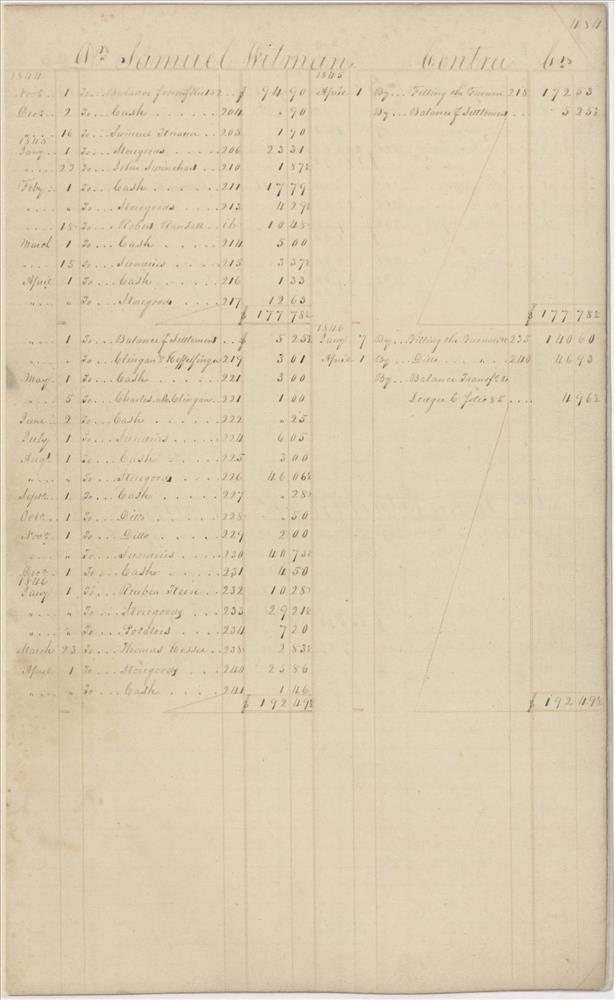 484
Dr. Samuel Witman Contra Cr.
1844 1845
Novr. 1 To Balance from folio 152 $ 94 90 April 1 By Filling the Furnace 218 172 53
Decr. 2 To Cash 204 " 90 By Balance of Settlement 5 25½
" 16 To Samuel 205 1 90
1845
Jany 1 To Storegoods 206 23 31
" 22 To John Swinehart 210 1 87½
Feby 1 To Cash 211 17 79
" " To Storegoods 213 4 29½
" 18 To Robert ib 10 48
March 1 To Cash 214 5 00
" 15 To Sundries 215 3 37½
April 1 To Cash 216 1 33
" " To Storegoods 217 12 63
$ 177 78½ $ 177 78½
1846
" 1 To Balance of Settlement $ 5 25½ Jany 7 By Filling the Furnace 235 140 60
" " To Clingan & Heffelfinger 219 3 01 April 1 By Ditto " 240 46 93
May 1 To Cash 221 3 00 By Balance Transfd. to
" 5 To Charles Clingan 221 1 00 Ledger C folio 85 4 96½
June 2 To Cash 222 " 25
July 1 To Sundries 224 6 05
Augt. 1 To Cash 225 3 00
" " To Storegoods 226 46 06½
Sepr. 1 To Cash 227 " 28
Octr. 1 To Ditto 228 " 50
Novr. 1 To Ditto 229 2 00
" " To Sundries 230 40 73½
Decr. 1 To Cash 231 4 50
1846
Jany 1 To Reuben 232 10 28
" " To Storegoods 233 29 21½
" " To Potatoes 234 7 20
March 23 To Thomas 238 2 83½
April 1 To Storegoods 240 25 86
" " To Cash 241 1 46
$ 192 49½ $ 192 49½